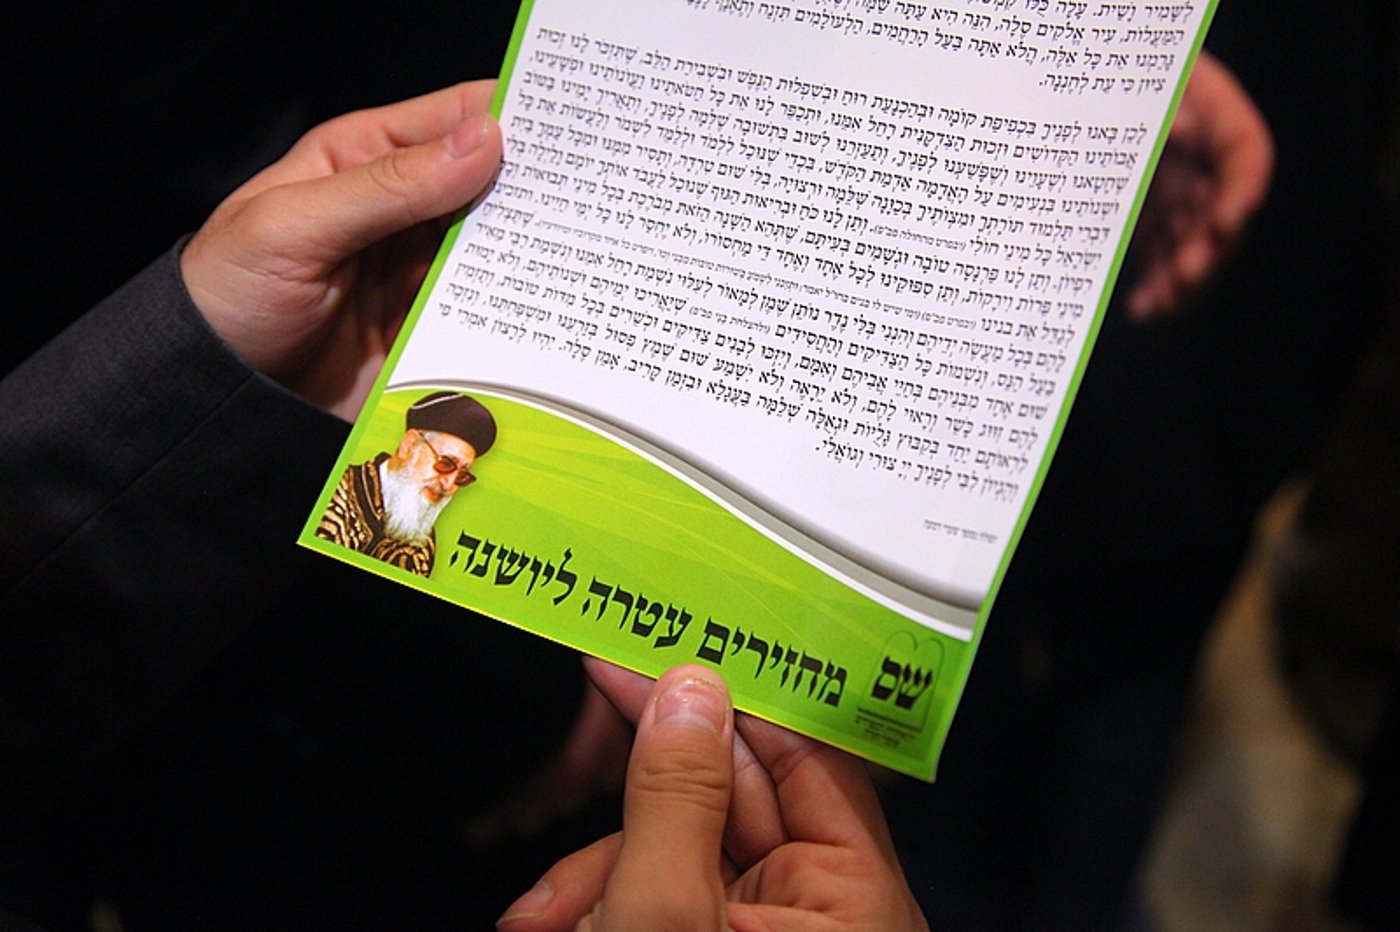 לְשָׁמִיר וָשַׁיִת. עָלָה כֻּלּוֹ
הַמַּעֲלוֹת, עִיר אֱלֹקִים סֶלָה, הִנֵּה הִיא עַתָּה שְׁמָמָה
גָּרַמְנוּ אֶת כָּל אֵלֶּה, הֲלֹא אַתָּה בַּעַל הָרַחֲמִים, הַלְעוֹלָמִים תִּזְנַח
צִיּוֹן כִּי עֵת לְחֶנְנָהּ.
לָכֵן בָּאנוּ לְפָנֶיךָ בִּכְפִיפַת קוֹמָה וּבְהַכְנָעַת רוּחַ וּבְשִׁפְלוּת הַנֶּפֶשׁ וּבִשְׁבִירַת הַלֵּב, שֶׁתִּזְכֹּר לָנוּ זְכוּת
אֲבוֹתֵינוּ הַקְּדוֹשִׁים וּזְכוּת הַצִּדְקָנִית רָחֵל אִמֵּנוּ, וּתְכַפֵּר לָנוּ אֶת כָּל חַטֹּאתֵינוּ וַעֲוֹנוֹתֵינוּ וּפְשָׁעֵינוּ,
שֶׁחָטָאנוּ וְשֶׁעָוִינוּ וְשֶׁפָּשַׁעְנוּ לְפָנֶיךָ, וְתַעַזְרֵנוּ לָשׁוּב בִּתְשׁוּבָה שְׁלֵמָה לְפָנֶיךָ, וְתַאֲרִיךְ יָמֵינוּ בְּטוֹב
וּשְׁנוֹתֵינוּ בַּנְּעִימִים עַל הָאֲדָמָה אַדְמַת הַקֹּדֶשׁ, בִּכְדֵי שֶׁנּוּכַל לִלְמֹד וּלְלַמֵּד לִשְׁמֹר וְלַעֲשׂוֹת אֶת כָּל
דִּבְרֵי תַלְמוּד תּוֹרָתֶךָ וּמִצְוֹתֶיךָ בְּכַוָּנָה שְׁלֵמָה וּרְצוּיָה, בְּלִי שׁוּם טִרְדָּה, וְתָסִיר מִמֶּנּוּ וּמִכָּל עַמְּךָ בֵּית
יִשְׂרָאֵל כָּל מִינֵי חוֹלִי וְתֵן לָנוּ כֹּחַ וּבְרִיאוּת הַגּוּף שֶׁנּוּכַל לַעֲבֹד אוֹתְךָ יוֹמָם וָלַיְלָה
רִפְיוֹן, וְתֵן לָנוּ פַּרְנָסָה טוֹבָה וּגְשָׁמִים בְּעִתָּם, שֶׁתְּהֵא הַשָּׁנָה הַזֹּאת מְבֹרֶכֶת בְּכָל מִינֵי תְּבוּאוֹת
מִינֵי פֵּרוֹת וִירָקוֹת, וְתֵן סִפּוּקֵינוּ לְכָל אֶחָד וְאֶחָד דֵּי מַחְסוֹרוֹ, וְלֹא יֶחְסַר לָנוּ כָּל יְמֵי חַיֵּינוּ,
לְגַדֵּל אֶת בָּנֵינוּ
לָהֶם בְּכָל מַעֲשֵׂה יְדֵיהֶם וְהִנְנִי בְּלִי נֶדֶר נוֹתֵן שֶׁמֶן לַמָּאוֹר לְעִלּוּי נִשְׁמַת רָחֵל אִמֵּנוּ וְנִשְׁמַת רַבִּי מֵאִיר
בַּעַל הַנֵּס, וְנִשְׁמוֹת כָּל הַצַּדִּיקִים וְהַחֲסִידִים שֶׁיַּאֲרִיכוּ יְמֵיהֶם וּשְׁנוֹתֵיהֶם, וְלֹא יָמוּת
שׁוּם אֶחָד מִבְּנֵיהֶם בְּחַיֵּי אֲבִיהֶם וְאִמָּם, וְיִזְכּוּ לְבָנִים צַדִּיקִים וּכְשֵׁרִים בְּכָל מִדּוֹת טוֹבוֹת, וְתַזְמִין
לָהֶם זִוּוּג כָּשֵׁר וְרָאוּי לָהֶם, וְלֹא יֵרָאֶה וְלֹא יִשָּׁמַע שׁוּם שֶׁמֶץ פִּסּוּל בְּזַרְעֵנוּ וּמִשְׁפַּחְתֵּנוּ, וְנִזְכֶּה
לִרְאוֹתָם יַחַד בְּקִבּוּץ גָּלֻיּוֹת וּגְאֻלָּה שְׁלֵמָה בַּעֲגָלָא וּבִזְמַן קָרִיב, אָמֵן סֶלָה. יִהְיוּ לְרָצוֹן אִמְרֵי פִי
וְהֶגְיוֹן לִבִּי לְפָנֶיךָ יְיָ צוּרִי וְגוֹאֲלִי.
מחזירים עטרה ליושנה
שס